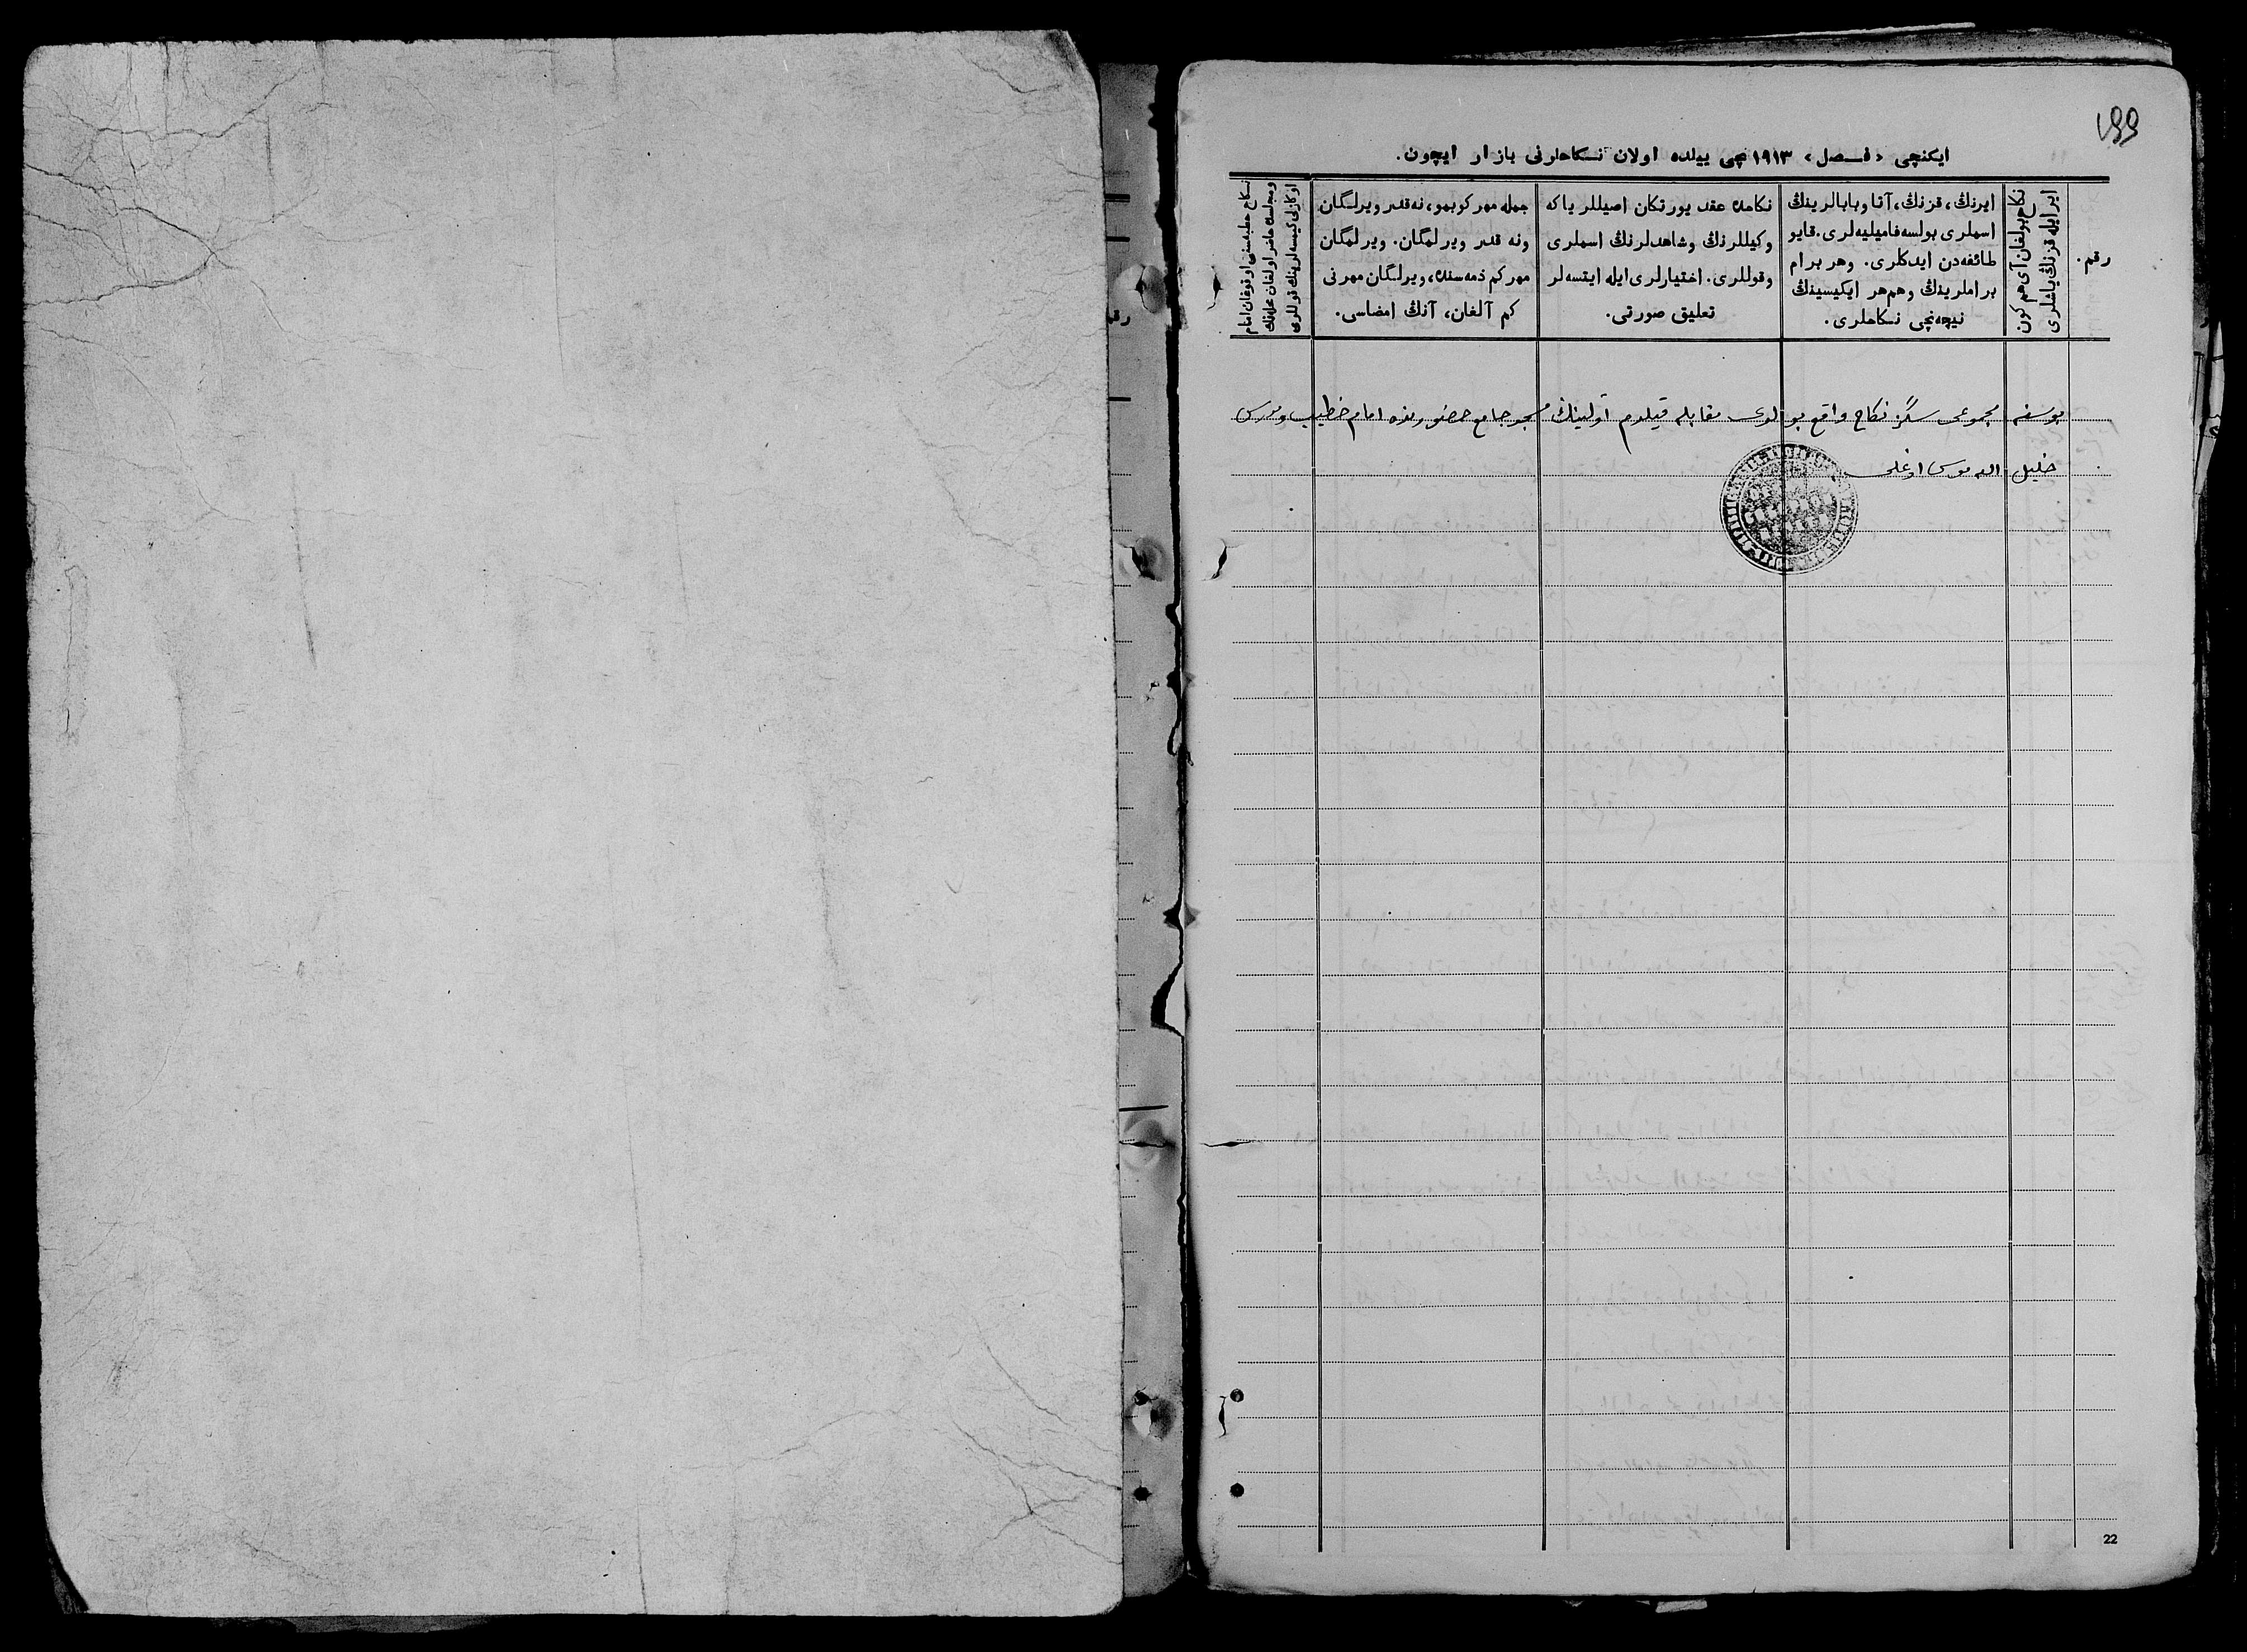 199
ایکنچی «فصل» ۱۹۱۳ نچی ییلده اولان نکاحلرنی یازار ایچون.
رقم.
ایر ایله قزنڭ یاشلری
نکاح بولغان آی هم کون
ایرنڭ، قزنڭ، آتا وبابالرینڭ
اسملری بولسه فامیلیه‌لری. قایو
طائفه‌دن ایدکلری. وهر برام
براملرینڭ وهم هر ایکیسینڭ
نیچه‌نچی نکاحلری.
نکاحده عقد یورتکان اصیللر یاکه
وکیللرنڭ وشاهدلرنڭ اسملری
وقوللری. اختیارلری ایله ایتسه‌لر
تعلیق صورتی.
جمله مهر کوبمو، نه قدر ویرلگان
ونه قدر ویرلمگان. ویرلمگان
مهر کم ذمه‌سنده، ویرلگان مهرنی
کم آلغان، آنڭ امضاسی.
نکاح خطبه‌سنی اوقوغان امام
ومجلسده حاضر اولغان
اوکازلی کیمسه‌لرینڭ قوللری
بوسنه مجموعی سکز نکاح واقع بولدی مقابله قیلدم اولینڭ مسجد جامع حضورنده امام خطیب ومدرس
خلیل الله موسی اوغلی
رقم
22